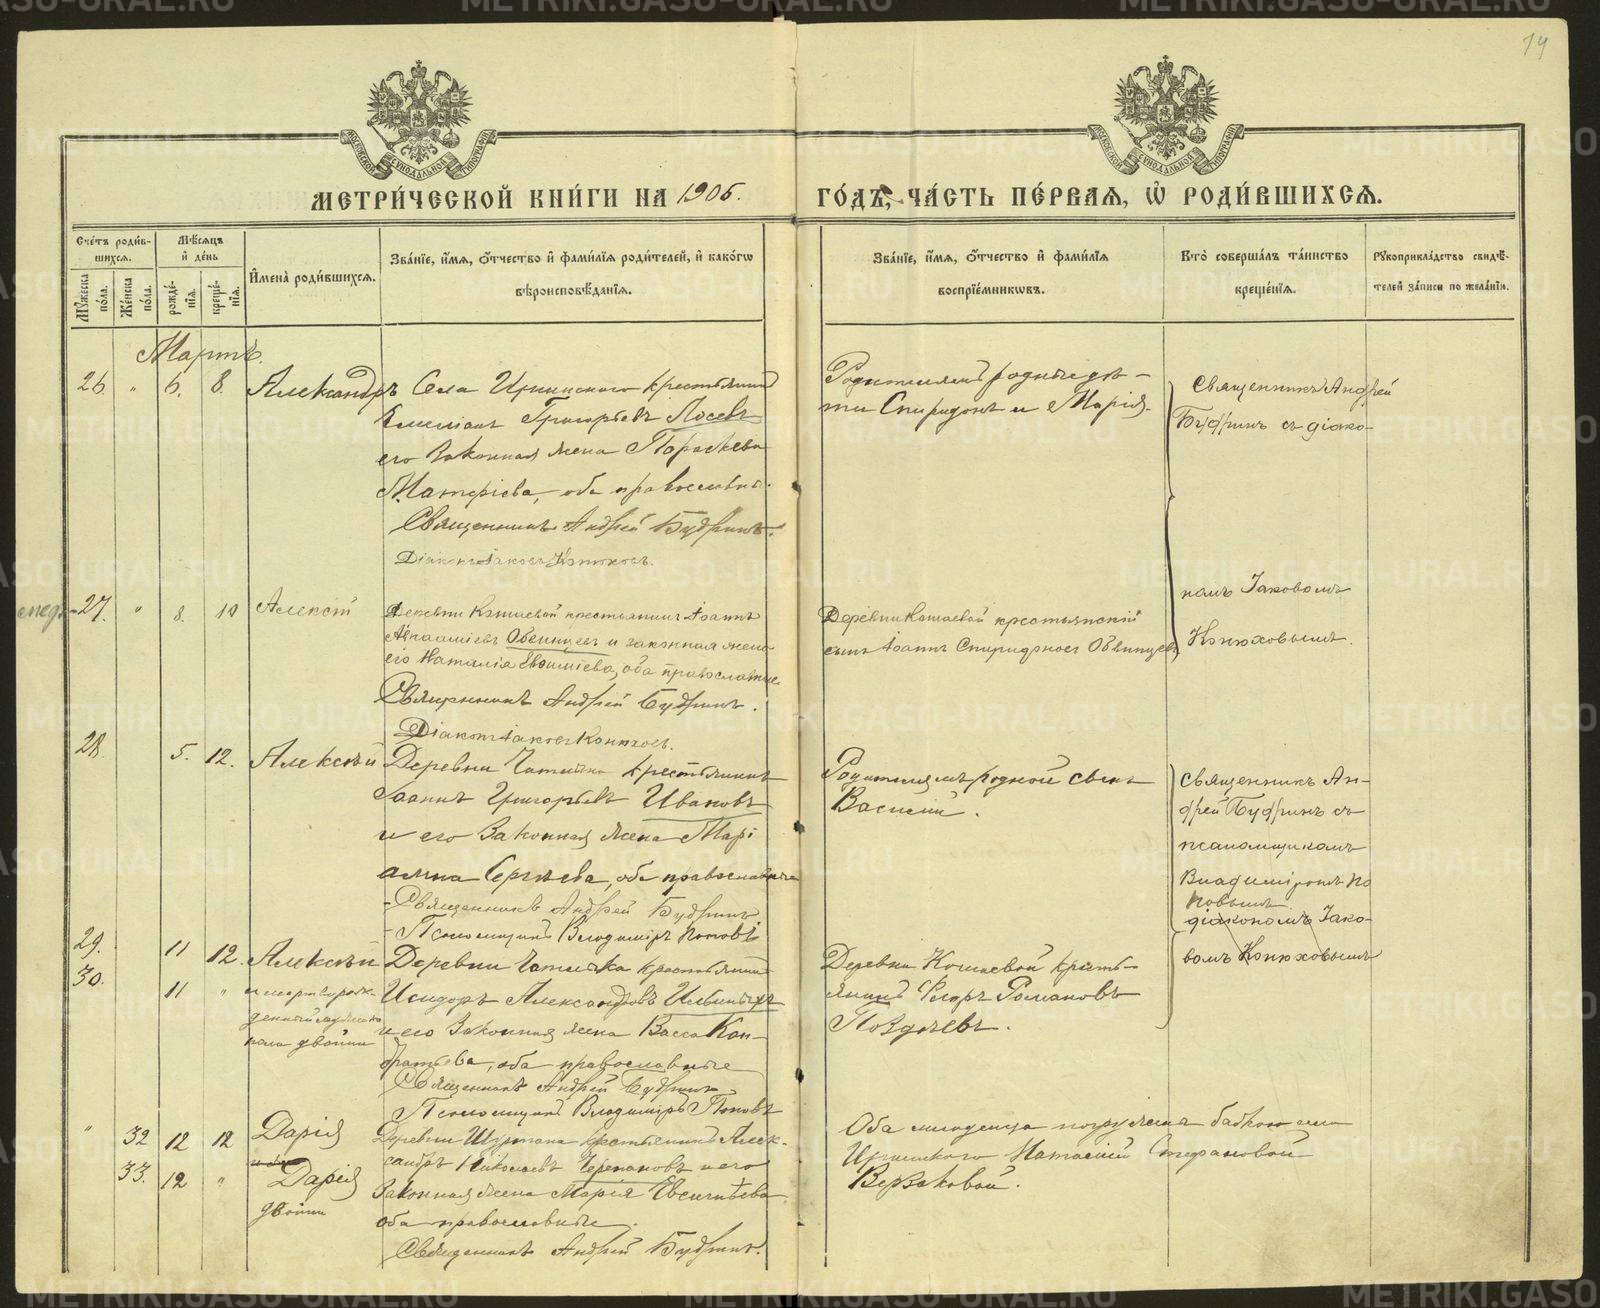 14
МОСКОВСКОЙ СѴНОДАЛЬНОЙ ТИПОГРАФІИ
МОСКОВСКОЙ СѴНОДАЛЬНОЙ ТИПОГРАФІИ
МЕТРИ́ЧЕСКОЙ КНИ́ГИ НА 1906. ГО́ДЪ, ЧА́СТЬ ПЕ́РВАЯ, Ѡ РОДИ́ВШИХСЯ.
Сче́тъ роди́в-
шихся.
Мꙋ́жеска по́ла.
Же́нска по́ла.
Мѣ́сяцъ
и́ де́нь
рожде́-
нїя.
креще́-
нїя.
И҆мена̀ роди́вшихся.
Зва́нїе, и҆́мя, ѻ҆́тчество и҆ фами́лїя роди́телей, и҆ како́гѡ
вѣроисповѣ́данїя.
Зва́нїе, и҆́мя, ѻ҆́тчество и҆ фами́лїя
воспрїе́мникѡвъ.
Кто̀ соверша́лъ та́инство
креще́нїя.
Рꙋкоприкла́дство свидѣ́-
телей за́писи по жела́нїю.
Мартъ.
26. " 6. 8. Александръ Села Иргинскаго крестьянинъ
Емеліанъ Григорьевъ Лосевъ
его законная жена Параскева
Матѳіева, оба православны.
Священникъ Андрей Будринъ.
Діаконъ Іаковъ Конюховъ.
Родителямъ родные дѣ-
ти Спиридонъ и Марія.
Священникъ Андрей
Будринъ съ діако-
номъ Іаковомъ
Конюховымъ.
27. " 8. 10 Алексій Деревни Кошаевой крестьянинъ Іоаннъ
Обвинцевъ и законная жена
его Наталія оба православные
Священникъ Андрей Будринъ.
Діаконъ Іаковъ Конюховъ.
Деревни Кошаевой крестьянскій
сынъ Іоаннъ Спиридоновъ Обвинцевъ
28. 5. 12. Алексѣй Деревни крестьянинъ
Іоаннъ Григорьевъ Ивановъ
и его законная жена Марі
амна Сергѣева, оба православные
Священникъ Андрей Будринъ
Псаломщикъ Владиміръ Поповъ
Родителямъ родной сынъ
Василій.
Священникъ Ан-
дрей Будринъ съ
псаломщикомъ
Владиміромъ По
повымъ
діакономъ Іако-
вомъ Конюховымъ
29. 11 12. Алексѣй Деревни крестьянинъ
30. 11 " и мертворож-
денный мужска
пола двойни
Исидоръ Александровъ Ильиныхъ
и его законная жена Васса Кон-
дратьева, оба православные
Священникъ Андрей Будринъ
Псаломщикъ Владиміръ Поповъ
Деревни Кошаевой кресть-
янинъ Романовъ
" 32 12 12 Дарія Деревни Шуртана крестьянинъ Алек-
сандръ Николаевъ Черепановъ и его
33. 12 " Дарія законная жена Марія
двойни оба православные.
Священникъ Андрей Будринъ.
Оба младенца погружена бабкою села
Иргинскаго Наталіей Стефановой